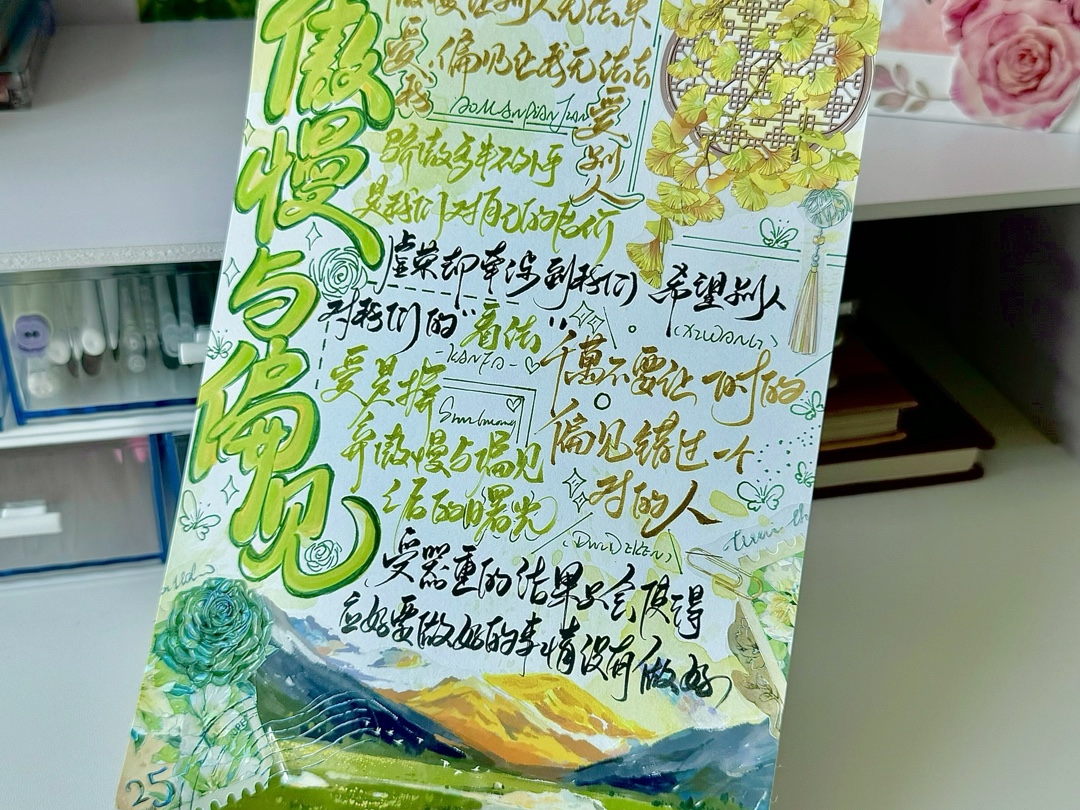 傲慢与偏见
傲慢让别人无法来
爱我
偏见让我无法去
爱别人
AoManPianJian
骄傲多半不外乎
是我们对自己的估价
虚荣却牵涉到我们 希望别人
(XIWANG)
对我们的“看法”
-KANFA-
千萬不要让一时的
偏见错过一个
对的人
(DUIDEREN)
爱是摒
弃傲慢与偏见
后的曙光
Shuguang
受器重的结果只会使得
应好要做好的事情没有做好
25